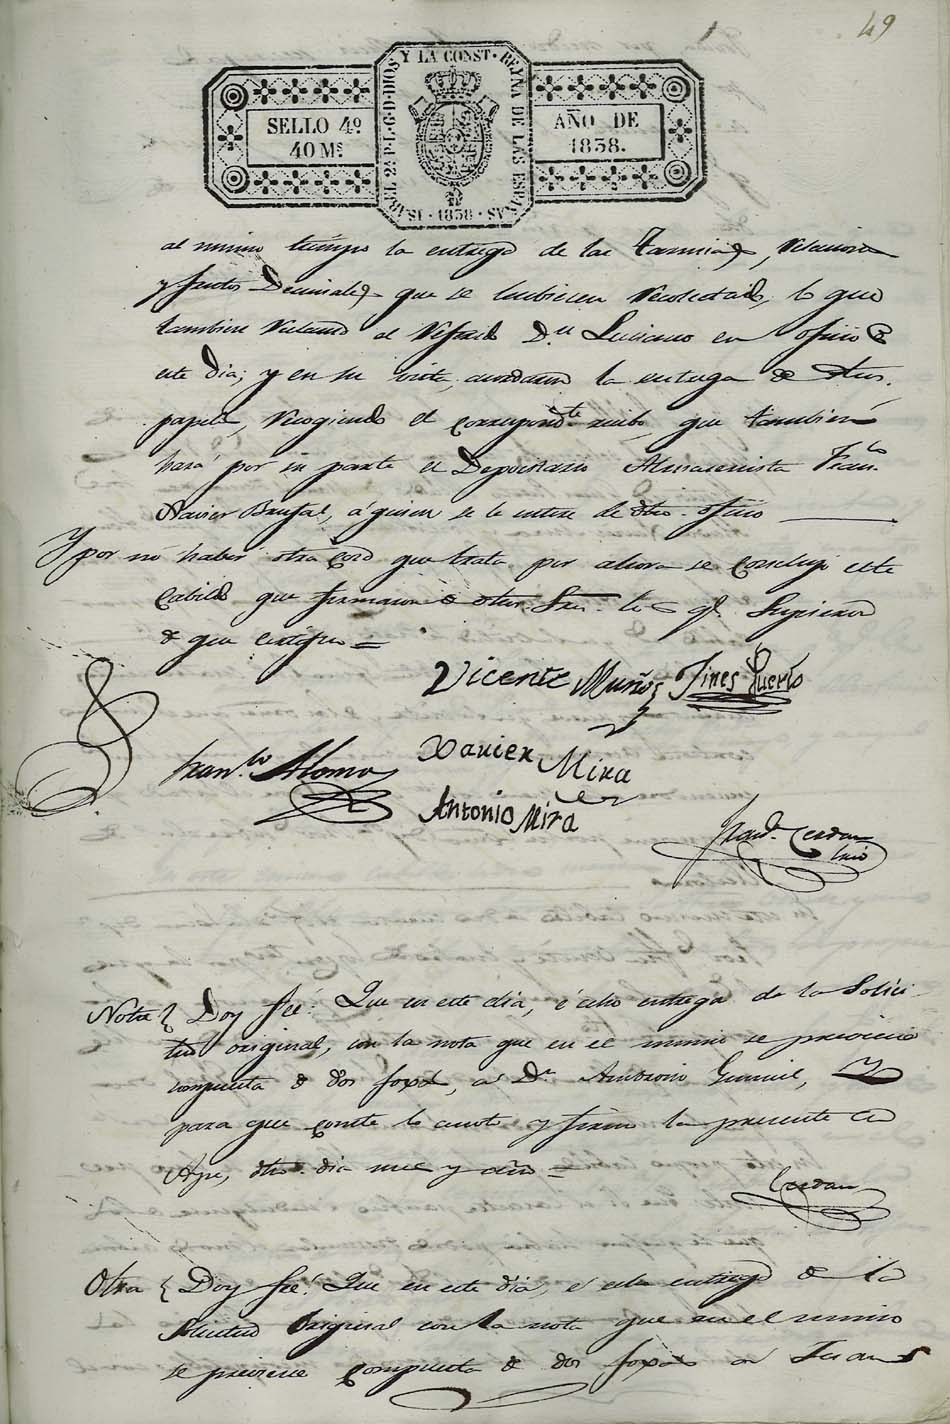 49
SELLO 4º
40 Mˢ.
ISABEL 2ª P. L. G. D. DIOS Y LA CONST. REYNA DE LAS ESPAÑAS
1838
AÑO DE
1838.
al mismo tiempo la entrega de las Tazmias,
y frutos Decimales que se hubiesen recolectado, lo que
tambien al D.ⁿ Luciano en oficio
este dia; y en su vista, acordaron la entrega de
papeles, recogiendo el correspond.te recibo, que tambien
hará por su parte el Depositario Almacenista Fran.co
Navier Brufal, á quien se le entere de dho. oficio
Y por no haber otra cosa que tratar por ahora se concluyó este
Cabildo que firmaron dhos. Sres. los q.e Supieron
de que certifico =
Vicente Muños Jines Puerto
Xavier Mira
Fran.co Alonso
Antonio Mira
Fran.co Cerdan
Srio
Nota { Doy feé: Que en este dia, é echo entrega de la Solici-
tud original, con la nota que en el mismo se previene
compuesta de dos foxas, a D.n Ambrosio
para que conste lo anoto y firmo la presente en
Aspe, dho. dia mes y año =
Cerdan
Otra { Doy feé: Que en este dia, é echo entrega de la
Solicitud Original con la nota que en el mismo
se previene compuesta de dos foxas a Juan